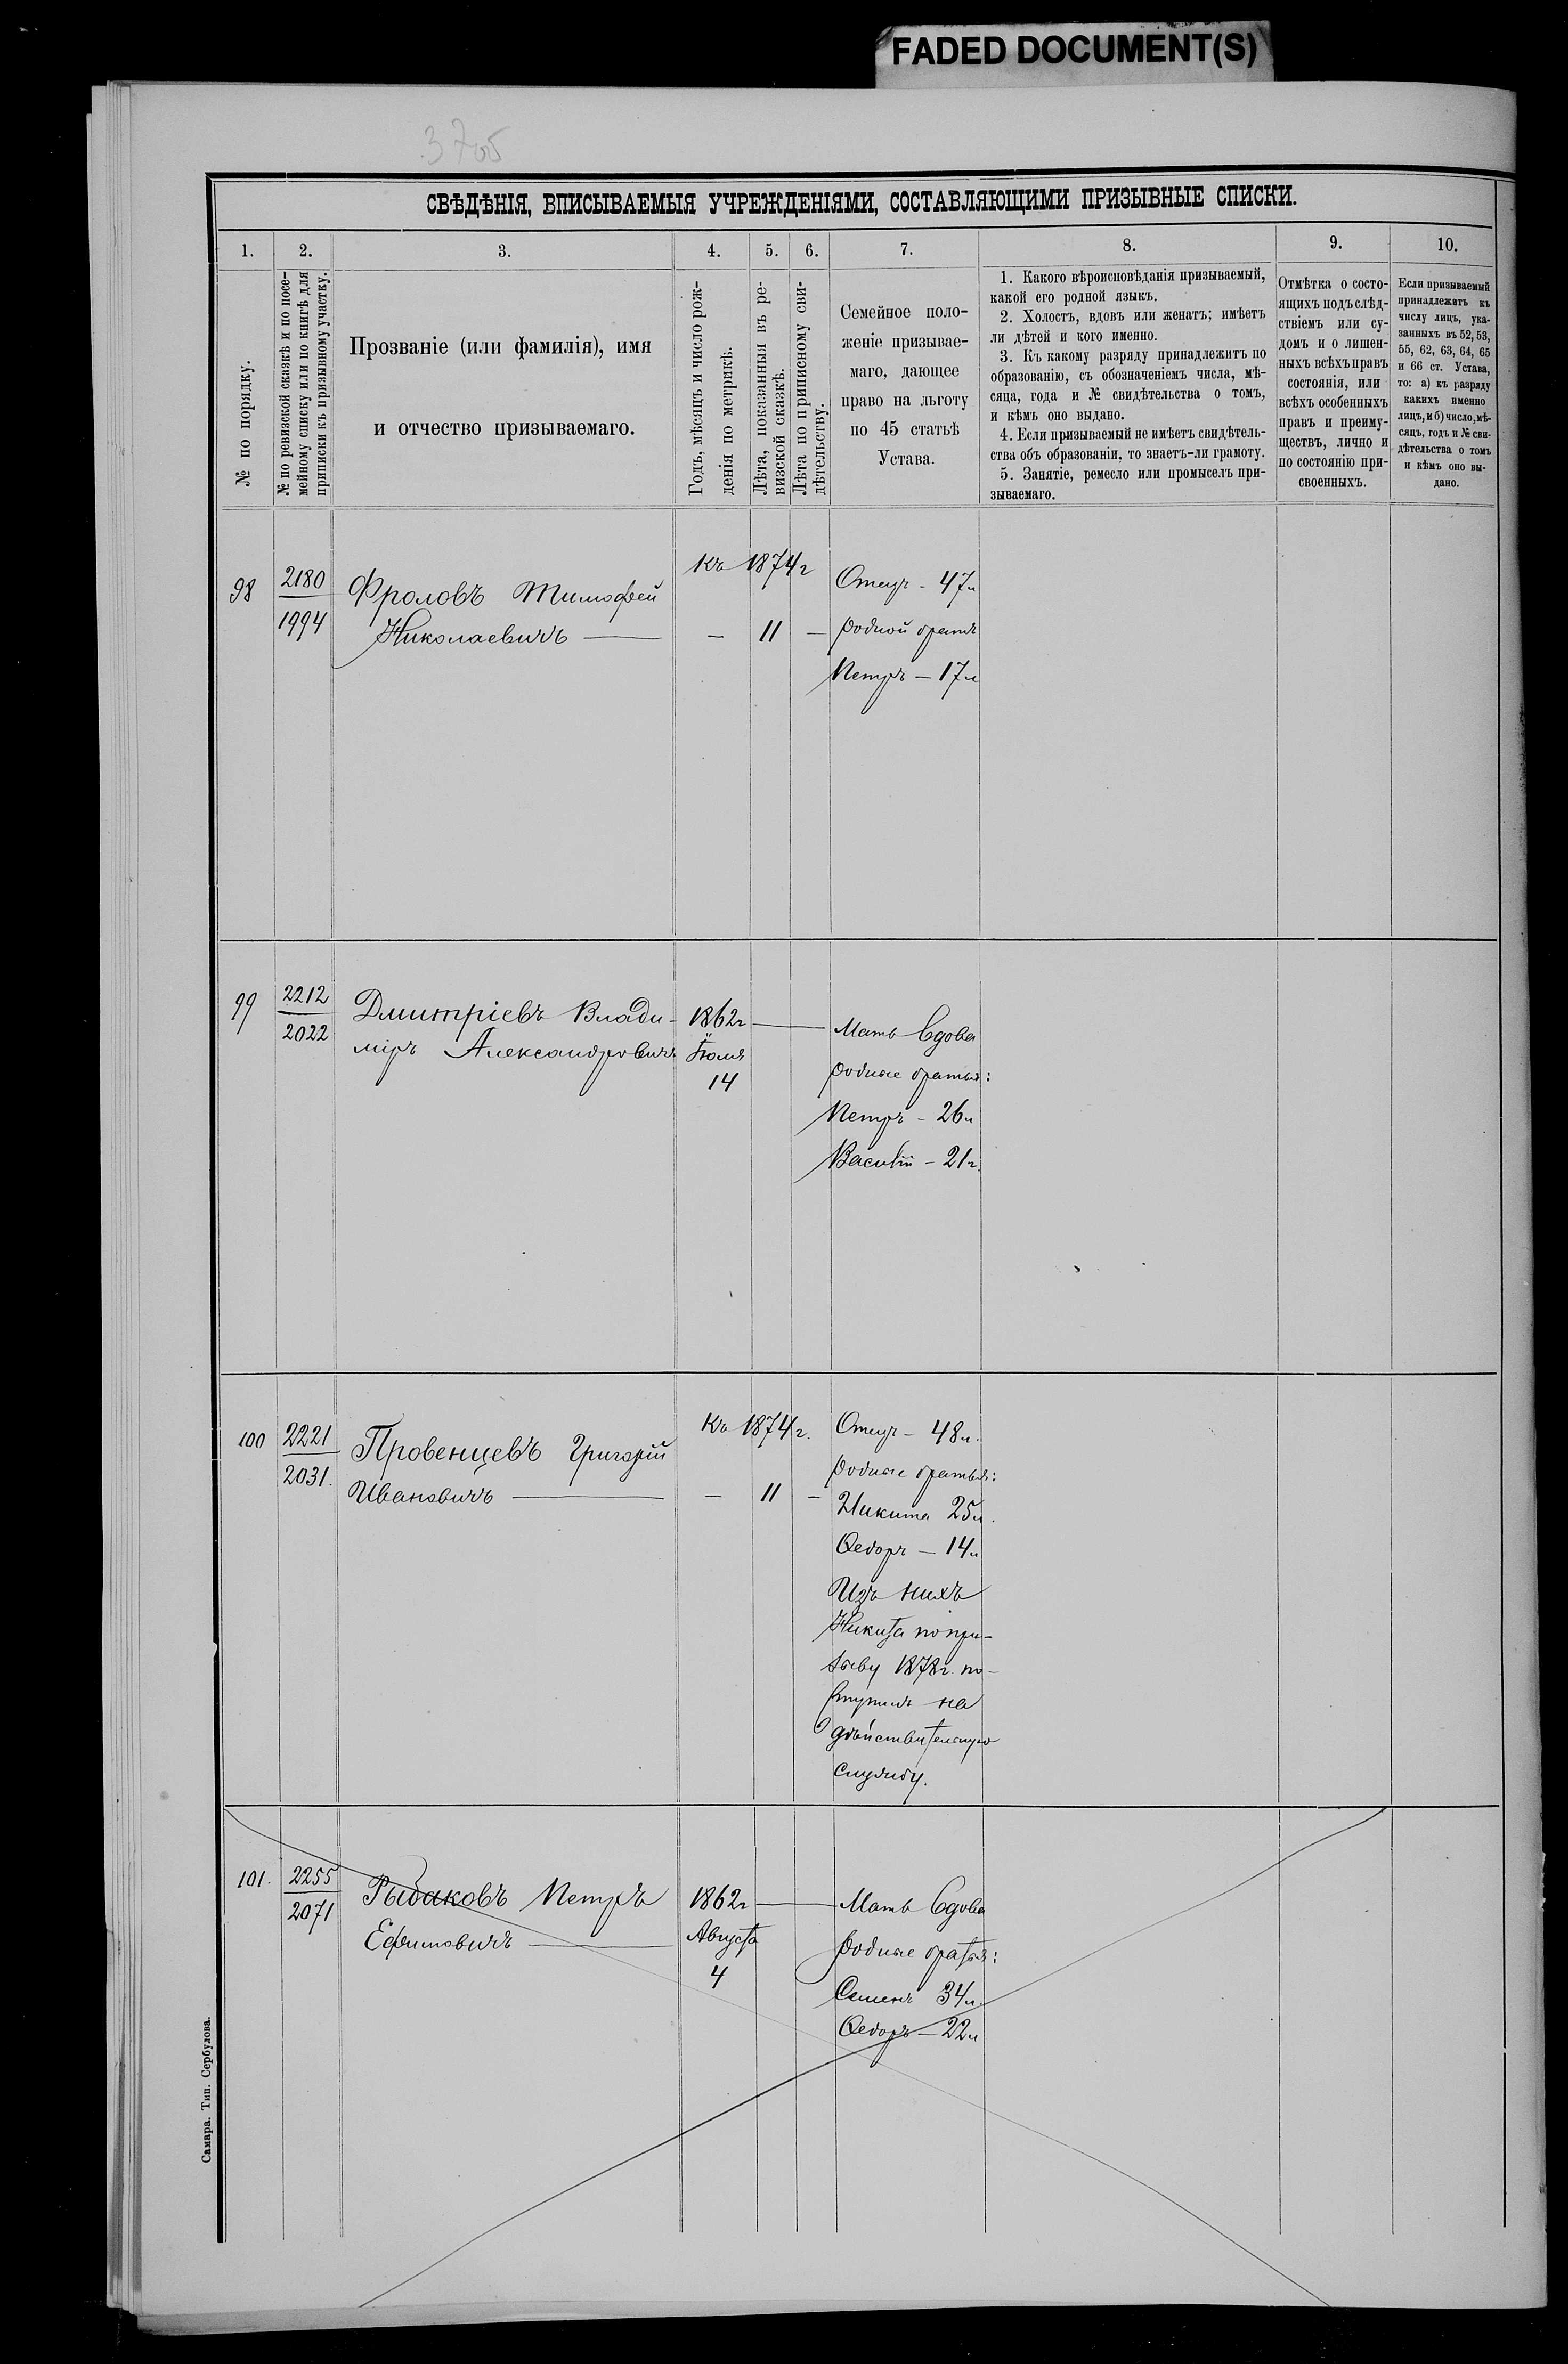 FADED DOCUMENT(S)
3705
СВѢДѢНІЯ, ВПИСЫВАЕМЫЯ УЧРЕЖДЕНІЯМИ, СОСТАВЛЯЮЩИМИ ПРИЗЫВНЫЕ СПИСКИ.
1. 2. 3. 4. 5. 6. 7. 8. 9. 10.
№ по порядку.
№ по ревизской сказкѣ и по посе-
мейному списку или по книгѣ для
приписки къ призывному участку.
Прозваніе (или фамилія), имя
и отчество призываемаго.
Годъ, мѣсяцъ и число рож-
денія по метрикѣ.
Лѣта, показанныя въ ре-
визской сказкѣ.
Лѣта по приписному сви-
дѣтельству.
Семейное поло-
женіе призывае-
маго, дающее
право на льготу
по 45 статьѣ
Устава.
1. Какого вѣроисповѣданія призываемый,
какой его родной языкъ.
2. Холостъ, вдовъ или женатъ; имѣетъ
ли дѣтей и кого именно.
3. Къ какому разряду принадлежитъ по
образованію, съ обозначеніемъ числа, мѣ-
сяца, года и № свидѣтельства о томъ,
и кѣмъ оно выдано.
4. Если призываемый не имѣетъ свидѣтель-
ства объ образованіи, то знаетъ-ли грамоту.
5. Занятіе, ремесло или промыселъ при-
зываемаго.
Отмѣтка о состо-
ящихъ подъ слѣд-
ствіемъ или су-
домъ и о лишен-
ныхъ всѣхъ правъ
состоянія, или
всѣхъ особенныхъ
правъ и преиму-
ществъ, лично и
по состоянію при-
своенныхъ.
Если призываемый
принадлежитъ къ
числу лицъ, ука-
занныхъ въ 52, 53,
55, 62, 63, 64, 65
и 66 ст. Устава,
то: а) къ разряду
какихъ именно
лицъ, и б) число, мѣ-
сяцъ, годъ и № сви-
дѣтельства о томъ
и кѣмъ оно вы-
дано.
98
2180
1994
Фроловъ Тимофей
Николаевичъ —
Къ 1874 г
— 11 —
Отецъ - 47 л
Родной братъ
Петръ — 17 л
99
2212
2022
Дмитріевъ Влади-
міръ Александровичъ
1862 г —
Іюля
14
Мать Вдова
Родные братья:
Петръ - 26 л
Василій - 21 г.
100
2221
2031.
Провенцевъ Григорій
Ивановичъ —
Къ 1874 г.
— 11 —
Отецъ - 48 л.
Родные братья:
Никита 25 л.
Ѳедоръ — 14 л
Изъ нихъ
Никита по при-
зыву 1878 г. по-
ступилъ на
дѣйствительную
службу.
101.
2255
2071
Рыбаковъ Петръ
Ефимовичъ —
1862 г —
Августа
4
Мать Вдова
Родные братья:
Семенъ 34 л.
Ѳедоръ — 22 л
Самара. Тип. Сербулова.